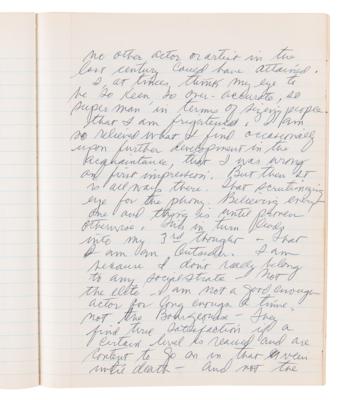 no other actor or artist in the
last century could have attained.
I at times, think my eye to
be so keen so over-accurate, so
super man in terms of sizing people
that I am frightened. I am
so relieved what I find occasionally
upon further development in the
acquaintance, that I was wrong
on first impression. But then it
is all ways there. That scrutinizing
eye for the phony. Believing every
one and thing is until proven
otherwise. This in turn leads
into my 3rd thought - that
I am an Outsider. I am
because I dont really belong
to any social strata - Not
the elite - I am not a good enough
actor for long enough a time.
not the Bourgeoisie - they
find true satisfaction if a
certain level is reached and are
content to go on in that vein
until death - And not the